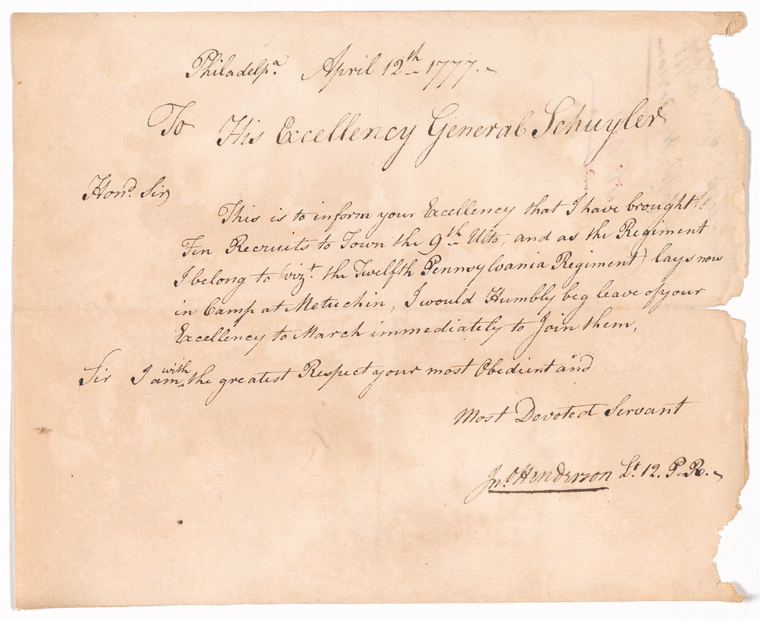 Philadelpa. April 12th 1777.
To His Excellency General Schuyler
Hond. Sir
This is to inform your Excellency that I have brought
Ten Recruits to Town the 9th Ulto, and as the Regiment
I belong to (vizt. the Twelfth Pennsylvania Regiment) lays now
in Camp at Metuchin, I would Humbly beg leave of your
Excellency to March immediately to Join them,
Sir I am with the greatest Respect your most Obedient and
Most Devoted Servant
Jno. Henderson Lt. 12. P.R.